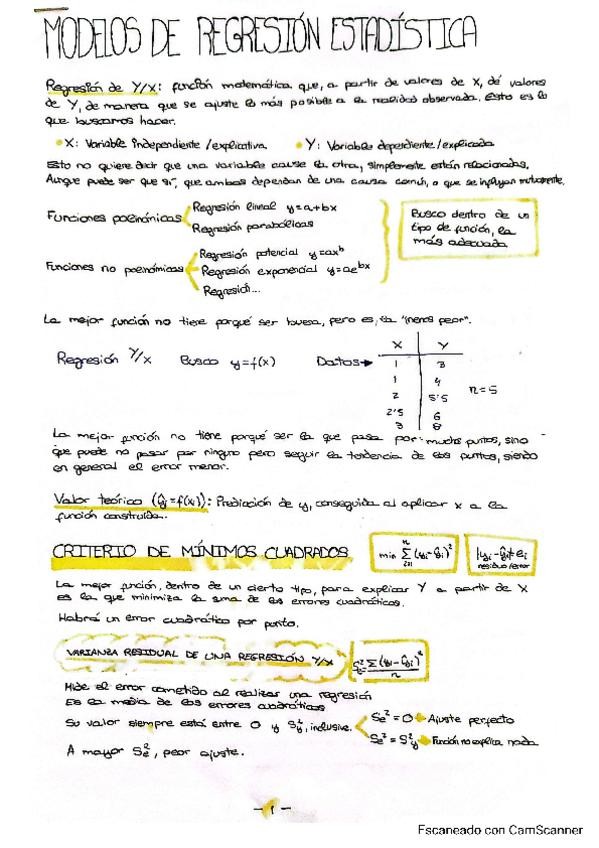 MODELOS DE REGRESIÓN ESTADÍSTICA
Regresión de Y/X: función matemática que, a partir de valores de X, dé valores
de Y, de manera que se ajuste lo más posible a la realidad observada. Esto es lo
que buscamos hacer.
• X: Variable independiente/explicativa • Y: Variable dependiente/explicada
Esto no quiere decir que una variable cause la otra, simplemente están relacionadas.
Aunque puede ser que sí, que ambas dependan de una causa común, o que se influyan mutuamente.
Funciones polinómicas
Regresión lineal y=a+bx
Regresión parabólicas
Funciones no polinómicas
Regresión potencial y=ax^b
Regresión exponencial y=ae^bx
Regresión...
Busco dentro de un
tipo de función, la
más adecuada
La mejor función no tiene porqué ser buena, pero es, la "menos peor".
Regresión Y/X Busco y=f(x) Datos→
X Y
1 3
1 4
2 5'5
2'5 6
3 8
n=5
La mejor función no tiene porqué ser la que pasa por muchos puntos, sino
que puede no pasar por ninguno pero seguir la tendencia de esos puntos, siendo
en general el error menor.
Valor teórico (ŷ=f(x)): Predicción de y, conseguida al aplicar x a la
función construida.
CRITERIO DE MÍNIMOS CUADRADOS
min Σ (yi-ŷi)²
|yi-ŷi|=ei
residuo/error
La mejor función, dentro de un cierto tipo, para explicar Y a partir de X
es la que minimiza la suma de los errores cuadráticos.
Habrá un error cuadrático por punto.
VARIANZA RESIDUAL DE UNA REGRESIÓN Y/X
Se²=Σ(yi-ŷi)²/n
Mide el error cometido al realizar una regresión
Es la media de los errores cuadráticos
Su valor siempre está entre 0 y Sy², inclusive.
Se²=0 → Ajuste perfecto
Se²=Sy² → Función no explica nada
A mayor Se², peor ajuste.
- 1 -
Escaneado con CamScanner